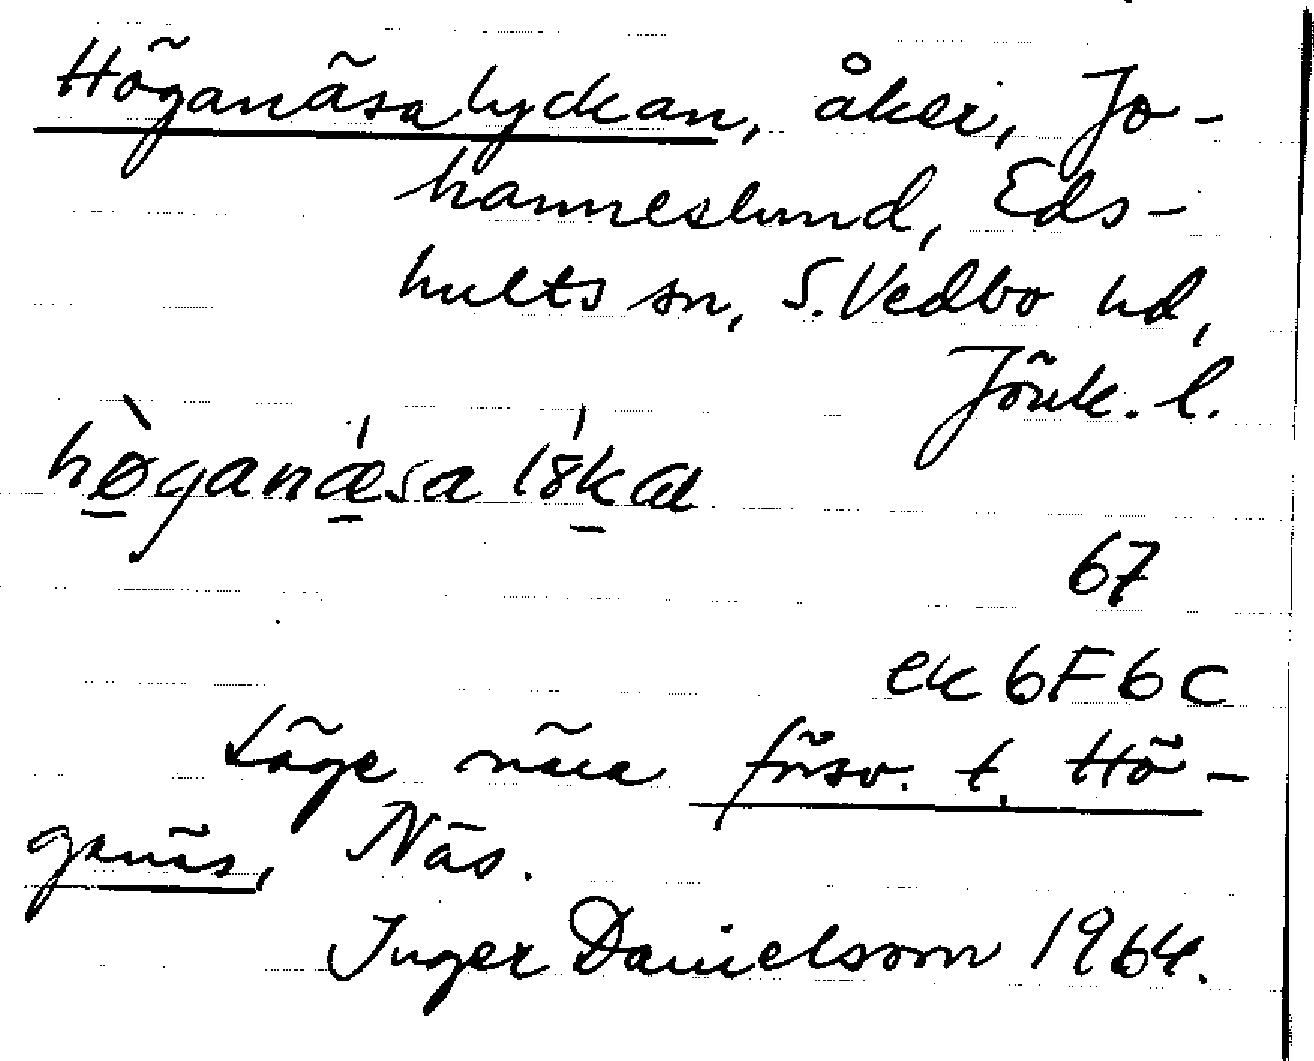 Höganäsalyckan, åker, Jo-
hanneslund, Eds-
hults sn, S. Vedbo hd,
Jönk. l.
hø̀ganǽsa lȣ́kɑ
67
ek 6F6c
Läge nära försv. t. Hö-
ganäs, Näs.
Inger Danielsson 1964.